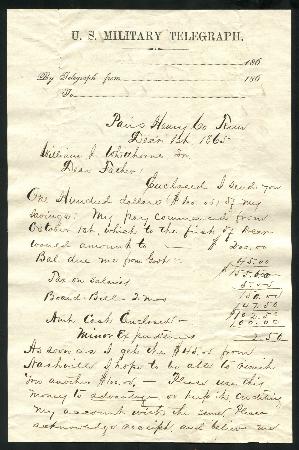 U. S. MILITARY TELEGRAPH.
186
By Telegraph from 186
To
Paris Henry Co Tenn
Decr 1st 1865
William J. Whitthorne Sr.
Dear Father
Enclosed I send you
One Hundred dollars $100.00 of my
savings: My pay commenced from
October 1st, which to the first of Decr
would amount to — $200.00
Bal. due me from Govt — 45.00
$155.00
Tax on salaries 5.00
150.00
Board Bill - 2 mos 47.50
$102.50
Amt Cash Enclosed - 100.00
Minor Expenses 2.50
As soon as I get the $45.00 from
Nashville I hope to be able to remit
you another $100.00, — Please use this
money to advantage or keep it crediting
my account with the same, Please
acknowledge receipt, and believe me